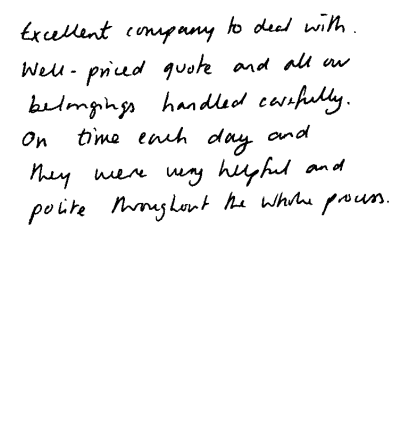 Excellent company to deal with.
Well-priced quote and all our
belongings handled carefully.
On time each day and
they were very helpful and
polite throughout the whole process.